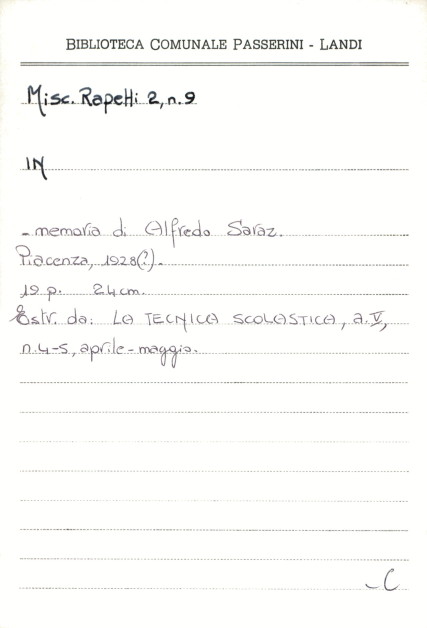 BIBLIOTECA COMUNALE PASSERINI - LANDI
Misc. Rapetti 2, n. 9
IN
- memoria di Alfredo Saraz.
Piacenza, 1928(?).
19 p. 24 cm.
Estr. da: LA TECNICA SCOLASTICA, a. V,
n. 4-5, aprile-maggio.
-C